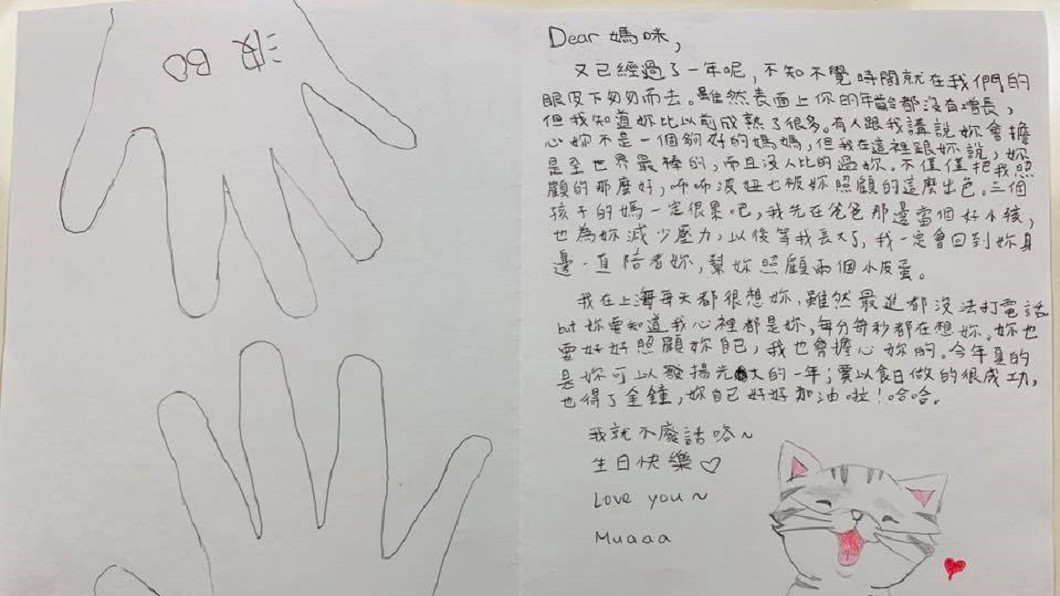 波 BO
Dear 媽咪,
又已經過了一年呢,不知不覺時間就在我們的
眼皮下匆匆而去。雖然表面上你的年齡都沒有增長,
但我知道妳比以前成熟了很多。有人跟我講說妳會擔
心妳不是一個夠好的媽媽,但我在這裡跟妳說,妳
是全世界最棒的,而且沒人比的過妳。不僅僅把我照
顧的那麼好,咘咘波妞也被妳照顧的這麼出色。三個
孩子的媽一定很累吧,我先在爸爸那邊當個好小孩,
也為妳減少壓力,以後等我長大了,我一定會回到妳身
邊一直陪著妳,幫妳照顧兩個小皮蛋。
我在上海每天都很想妳,雖然最進都沒法打電話
but 妳要知道我心裡都是妳,每分每秒都在想妳。妳也
要好好照顧妳自己,我也會擔心妳的。今年真的
是妳可以發揚光大的一年;愛以食日做的很成功,
也得了金鐘,妳自己好好加油啦!哈哈。
我就不廢話咯~
生日快樂♡
Love you~
Muaaa